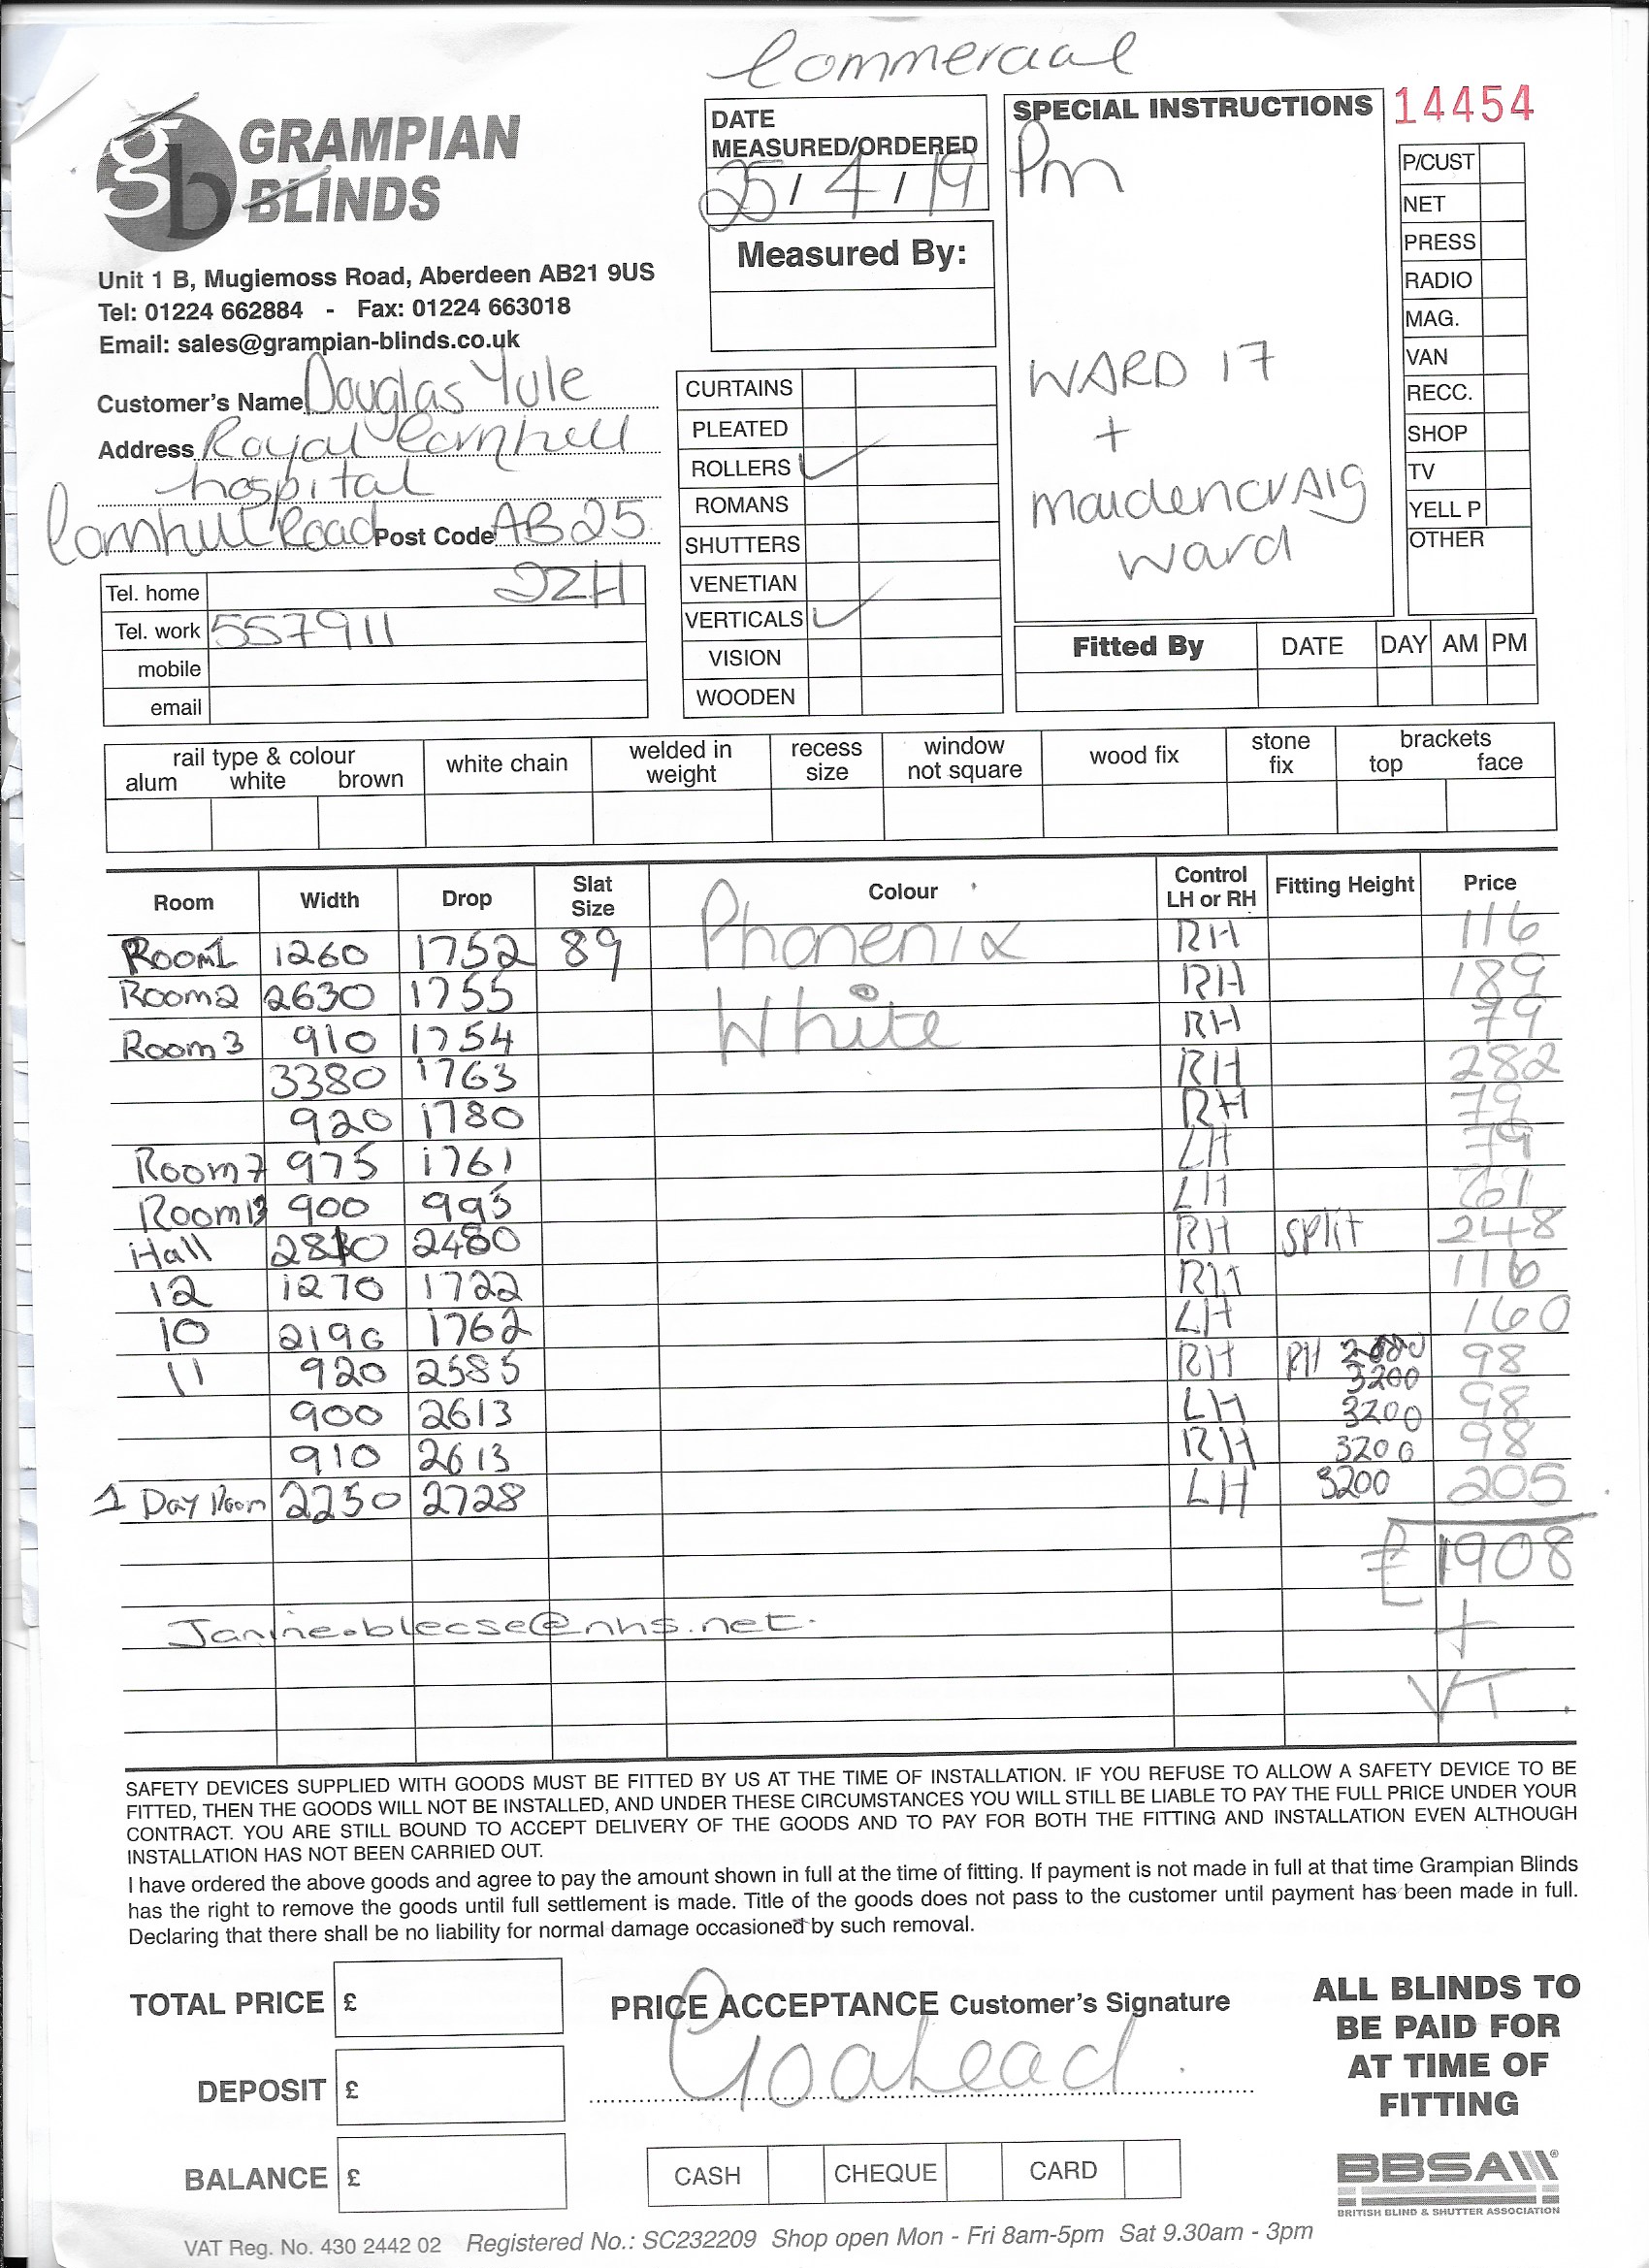 Commercial
GRAMPIAN
BLINDS
gb
Unit 1 B, Mugiemoss Road, Aberdeen AB21 9US
Tel: 01224 662884 - Fax: 01224 663018
Email: sales@grampian-blinds.co.uk
Customer's Name Douglas Yule
Address Royal Cornhill
hospital
Cornhill Road Post Code AB25
Tel. home 2ZH
Tel. work 557911
mobile
email
DATE
MEASURED/ORDERED
25/4/19
Measured By:
CURTAINS
PLEATED
ROLLERS ✓
ROMANS
SHUTTERS
VENETIAN
VERTICALS ✓
VISION
WOODEN
SPECIAL INSTRUCTIONS
Pm
WARD 17
+
maidencrAIg
ward
14454
P/CUST
NET
PRESS
RADIO
MAG.
VAN
RECC.
SHOP
TV
YELL P
OTHER
Fitted By DATE DAY AM PM
rail type & colour
alum white brown
white chain
welded in
weight
recess
size
window
not square
wood fix
stone
fix
brackets
top face
Room Width Drop Slat Size Colour Control LH or RH Fitting Height Price
Room1 1260 1752 89 Phoenix RH 116
Room2 2630 1755 White RH 189
Room3 910 1754 RH 79
3380 1763 RH 282
920 1780 RH 79
Room7 975 1761 LH 79
Room13 900 995 LH 61
Hall 2810 2480 RH split 248
12 1270 1722 RH 116
10 2196 1762 LH 160
11 920 2585 RH RH 3200 98
900 2613 LH 3200 98
910 2613 RH 3200 98
1 Day Room 2250 2728 LH 3200 205
£1908
+
VT
Janine.blecse@nhs.net
SAFETY DEVICES SUPPLIED WITH GOODS MUST BE FITTED BY US AT THE TIME OF INSTALLATION. IF YOU REFUSE TO ALLOW A SAFETY DEVICE TO BE
FITTED, THEN THE GOODS WILL NOT BE INSTALLED, AND UNDER THESE CIRCUMSTANCES YOU WILL STILL BE LIABLE TO PAY THE FULL PRICE UNDER YOUR
CONTRACT. YOU ARE STILL BOUND TO ACCEPT DELIVERY OF THE GOODS AND TO PAY FOR BOTH THE FITTING AND INSTALLATION EVEN ALTHOUGH
INSTALLATION HAS NOT BEEN CARRIED OUT.
I have ordered the above goods and agree to pay the amount shown in full at the time of fitting. If payment is not made in full at that time Grampian Blinds
has the right to remove the goods until full settlement is made. Title of the goods does not pass to the customer until payment has been made in full.
Declaring that there shall be no liability for normal damage occasioned by such removal.
TOTAL PRICE £
DEPOSIT £
BALANCE £
PRICE ACCEPTANCE Customer's Signature
Goahead.
CASH CHEQUE CARD
ALL BLINDS TO
BE PAID FOR
AT TIME OF
FITTING
BBSA
BRITISH BLIND & SHUTTER ASSOCIATION
VAT Reg. No. 430 2442 02 Registered No.: SC232209 Shop open Mon - Fri 8am-5pm Sat 9.30am - 3pm